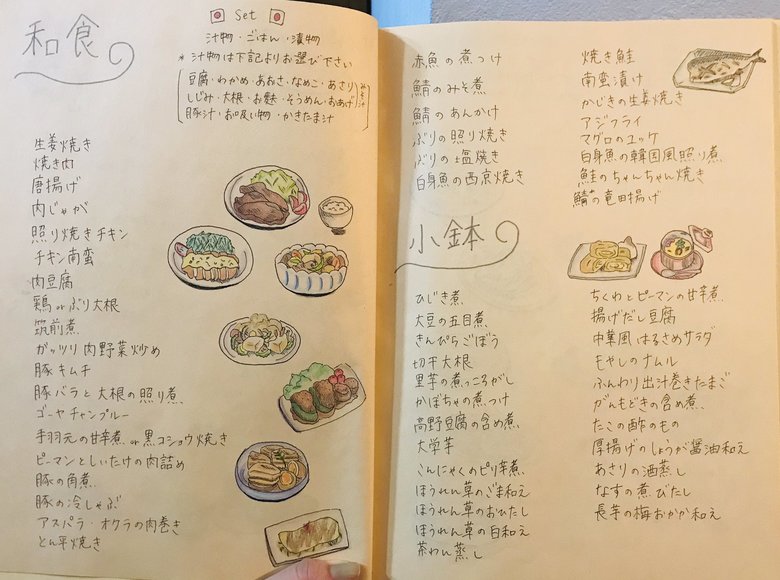 和食
Set
汁物・ごはん・漬物
* 汁物は下記よりお選び下さい
豆腐・わかめ・あおさ・なめこ・あさり
しじみ・大根・お麩・そうめん・おあげ
みそ汁
豚汁・お吸い物・かきたま汁
生姜焼き
焼き肉
唐揚げ
肉じゃが
照り焼きチキン
チキン南蛮
肉豆腐
鶏orぶり大根
筑前煮
ガッツリ肉野菜炒め
豚キムチ
豚バラと大根の照り煮
ゴーヤチャンプルー
手羽元の甘辛煮or黒コショウ焼き
ピーマンとしいたけの肉詰め
豚の角煮
豚の冷しゃぶ
アスパラ・オクラの肉巻き
とん平焼き
赤魚の煮つけ
鯖のみそ煮
鯖のあんかけ
ぶりの照り焼き
ぶりの塩焼き
白身魚の西京焼き
焼き鮭
南蛮漬け
かじきの生姜焼き
アジフライ
マグロのユッケ
白身魚の韓国風照り煮
鮭のちゃんちゃん焼き
鯖の竜田揚げ
小鉢
ひじき煮
大豆の五目煮
きんぴらごぼう
切干大根
里芋の煮っころがし
かぼちゃの煮つけ
高野豆腐の含め煮
大学芋
こんにゃくのピリ辛煮
ほうれん草のごま和え
ほうれん草のおひたし
ほうれん草の白和え
茶わん蒸し
ちくわとピーマンの甘辛煮
揚げだし豆腐
中華風はるさめサラダ
もやしのナムル
ふんわり出汁巻きたまご
がんもどきの含め煮
たこの酢のもの
厚揚げのしょうが醤油和え
あさりの酒蒸し
なすの煮びたし
長芋の梅おかか和え